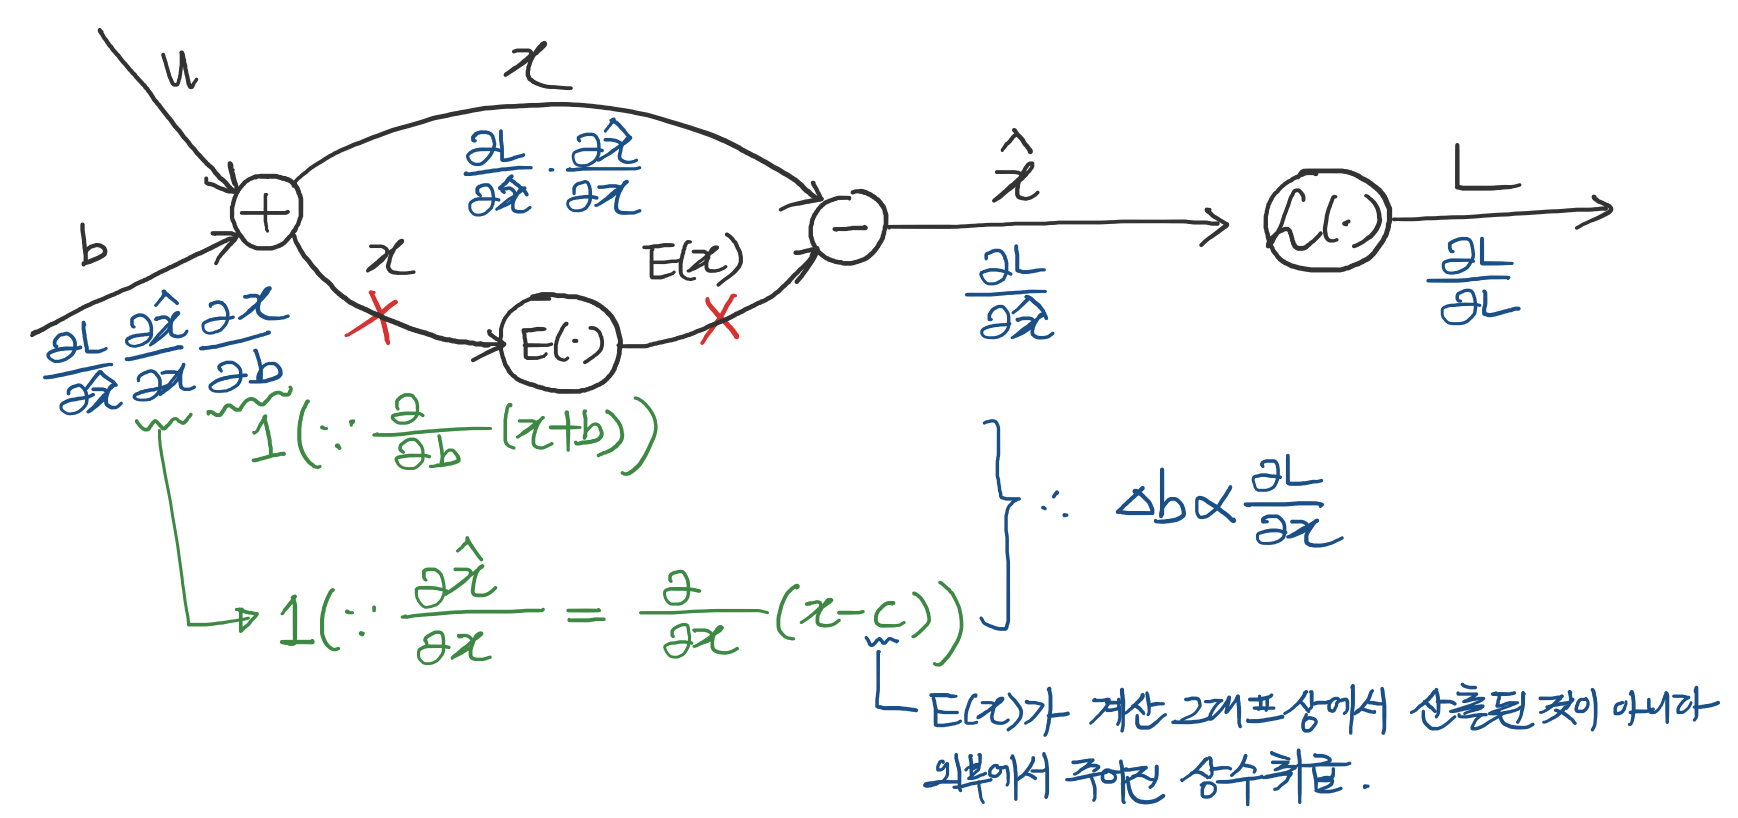 u
x
∂L/∂x̂ · ∂x̂/∂x
+
b
x
E(x)
E(·)
−
x̂
∂L/∂x̂
ℒ(·)
L
∂L/∂L
∂L/∂x̂ ∂x̂/∂x ∂x/∂b
1(∵ ∂/∂b (x+b))
1(∵ ∂x̂/∂x = ∂/∂x (x−c))
∴ Δb ∝ ∂L/∂x
E(x)가 계산 그래프 상에서 산출된 것이 아니라
외부에서 주어진 상수 취급.